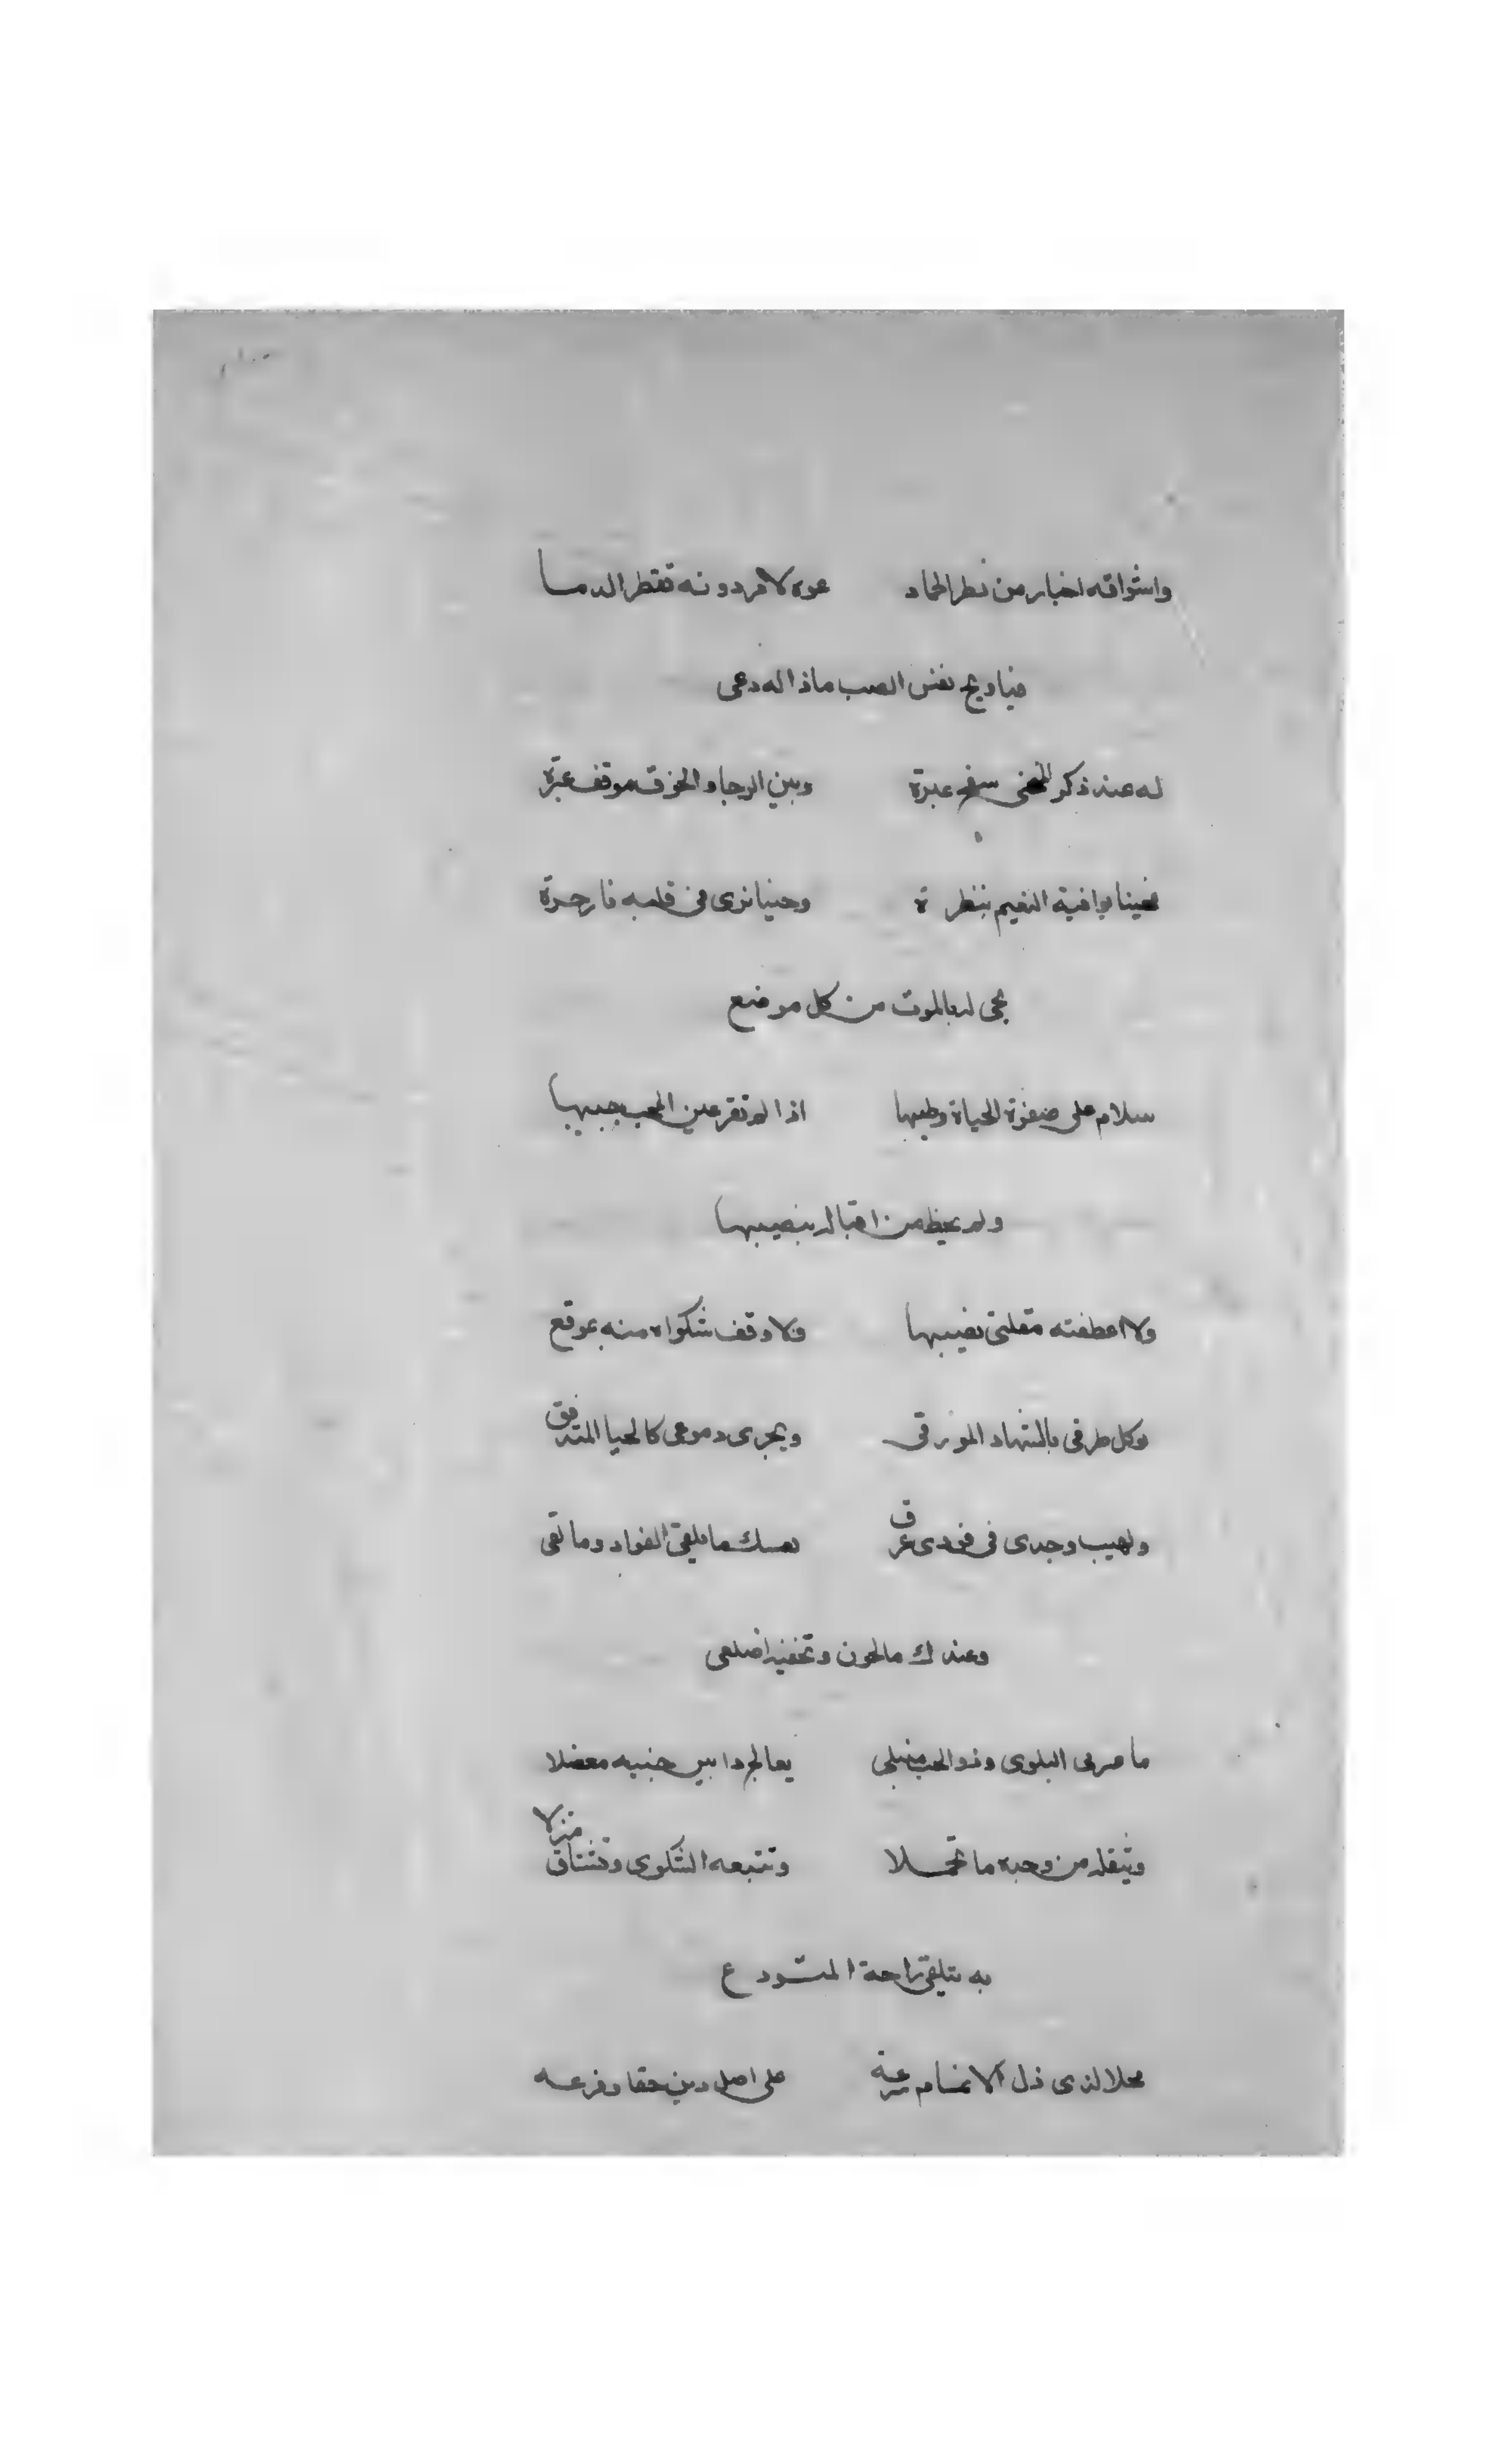 واشواقه اخبار من نظر الحماد عوه لامر دونه تقتطر الدما
فياويح نفس الصب ماذا له دعى
له عند ذكر المنحنى سفح عبرة وبين الرجا والخوف موقف عبرة
فحينا يوافيه النعيم بنظرة وحينا ترى في قلبه نار حرة
يجى له بالموت من كل موضع
سلام على صفوة الحياة وطيبها اذا لم تقر عين المحب حبيبها
ولم يحظ من اقباله بنصيبها
ولا اعطفته مقلتى نصيبها ولا وقف شكواه منه بموقع
موكل طرفى بالسهاد المورقى ويجرى دموعى كالحيا المتدفق
ولهيب وجدى فى فودى عرق همسك ما يلقى الفواد وما لقى
وعندك مالحون وتخفيه اضلعى
ما ضر بى البلوى وذو الحب مبتلى يعالج دا بين جنبيه معضلا
ويثقله من وجده ما تحملا وتتبعه الشكوى وتشتاق منزلا
به يتلقى راحة المتودع
محلا لذى ذل الانام على اصل دين حقا وفرعه